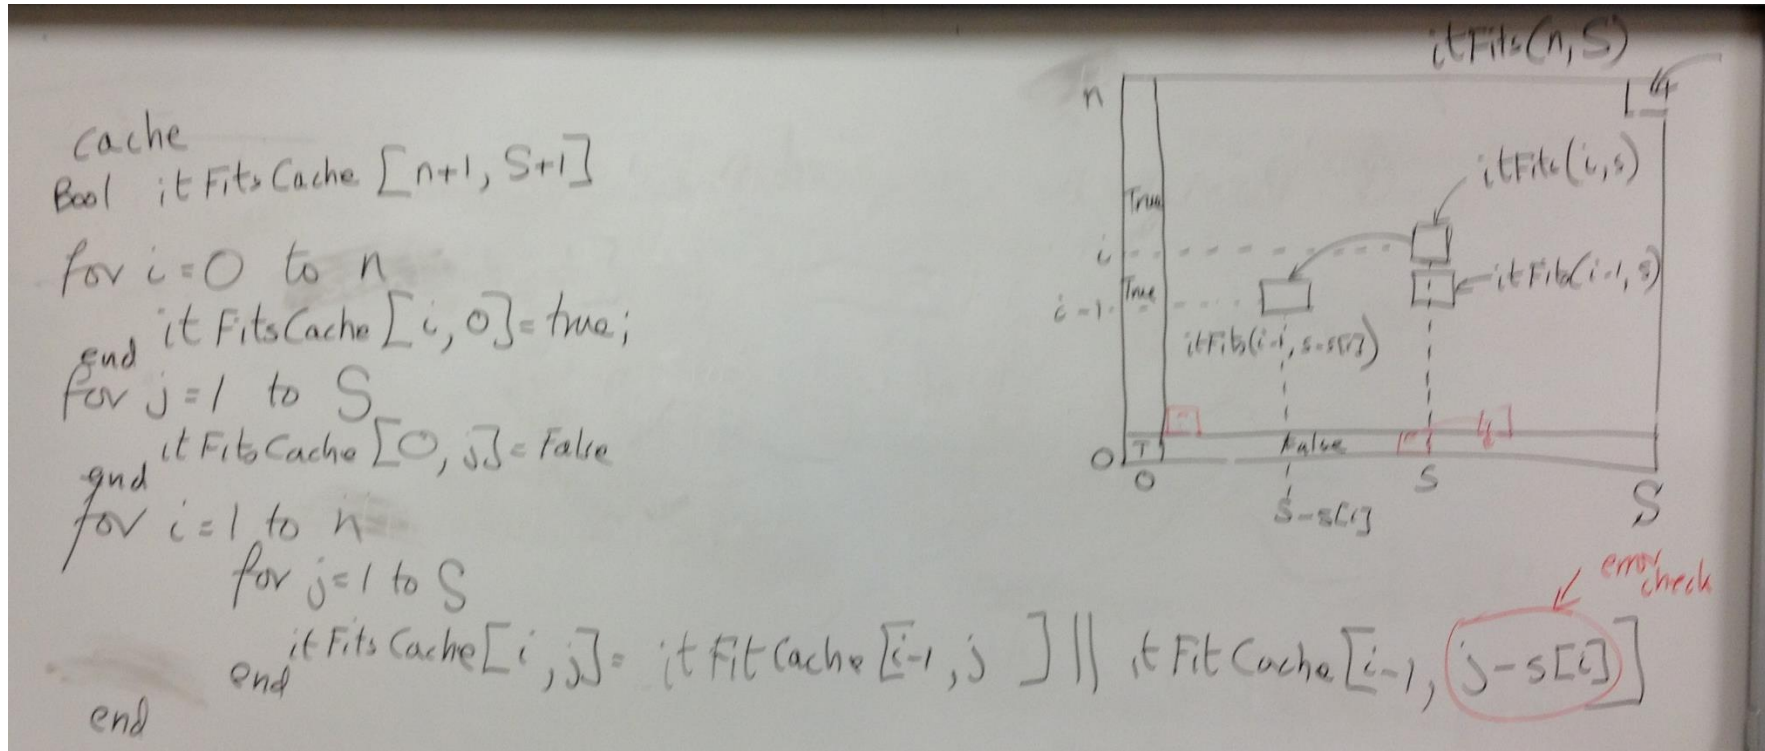 cache
Bool itFitsCache [n+1, S+1]
for i=0 to n
itFitsCache [i, 0]= true;
end
for j=1 to S
itFitsCache [0, j]= False
end
for i=1 to n
for j=1 to S
itFitsCache[i, j]= itFitCache [i-1, j ] || itFitCache [i-1, j-s[i]]
end
end
error check
itFits(n,S)
n
itFits(i,s)
True
i
itFits(i-1, s)
True
i-1
itFits(i-1, s-s[i])
T
False
O
O
s
S
S-s[i]